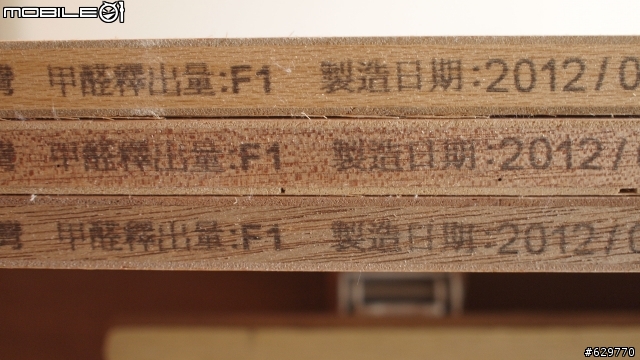 MOBILE01
灣 甲醛釋出量:F1 製造日期:2012/0
灣 甲醛釋出量:F1 製造日期:2012/
灣 甲醛釋出量:F1 製造日期:2012/0
#629770